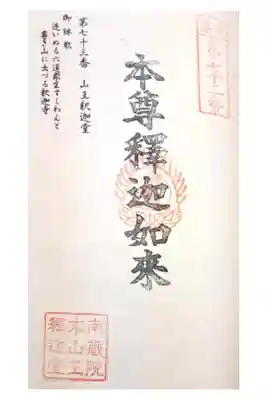 第七十三番　山王釈迦堂
御詠歌
迷いぬる六道衆生すくわんと
尊き山に出づる釈迦寺
本尊釋迦如來
南蔵院
本山王
釋迦堂